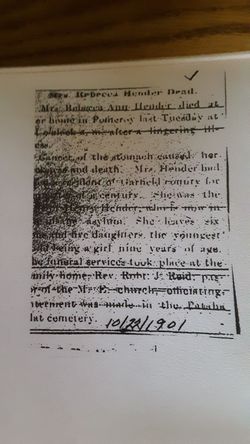 Mrs. Rebecca Hender Dead.
Mrs. Rebecca Ann Hender died at
er home in Pomeroy last Tuesday at
o'clock a. m. after a lingering ill-
ess.
Cancer of the stomach caused her
sickness and death. Mrs. Hender had
resident of Garfield county for
of a century. She was the
Henry Hender, who is now in
asylum. She leaves six
and five daughters, the youngest
being a girl nine years of age.
he funeral services took place at the
amily home, Rev. Robt. J. Reid, pas-
r of the M. E. church, officiating.
nterment was made in the Pataha
lat cemetery. 10/22/1901